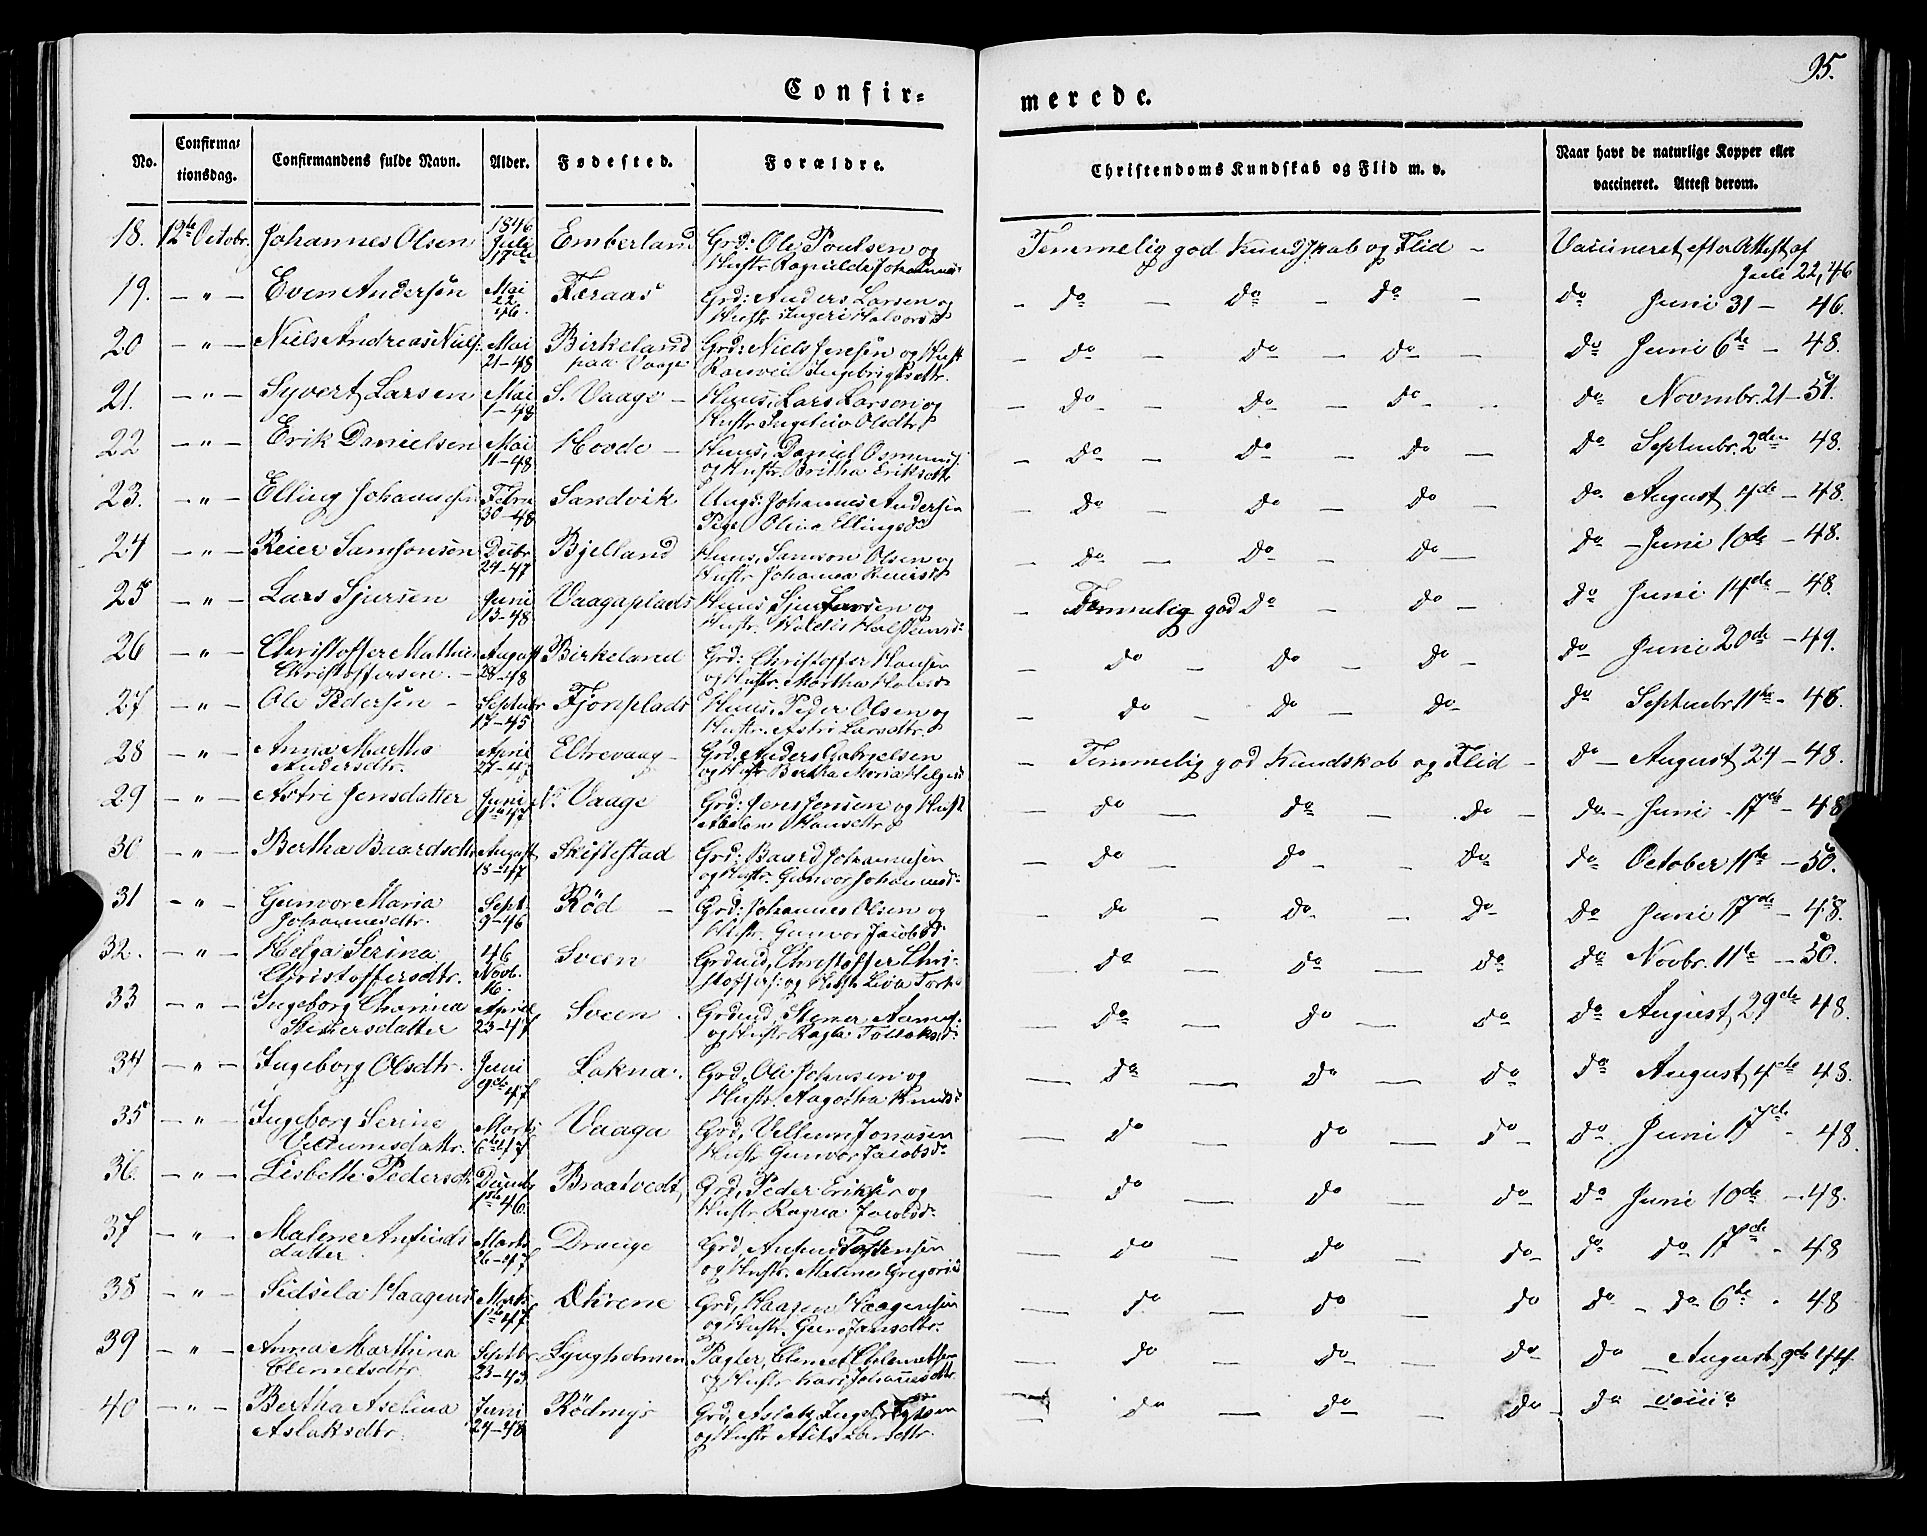 95.
Confir-
merede.
No.
Confirma-
tionsdag.
Confirmandens fulde Navn.
Alder.
Fødested.
Forældre.
Christendoms Kundskab og Flid m. v.
Naar havt de naturlige Kopper eller
vaccineret. Attest derom.
18. 12te Octobr. Johannes Olsen 1846 Juli 17de Emberland Grd: Ole Poulsen og
Hustr. Johannes- Temmelig god Kundskab og Flid - Vaccineret efter Attest af
Juli 22, 46
19. - " - Even Andersen Mai 22 46. Færaas Grd: Anders Larsen og
Hustr Ingeri Halvorsd - do - do - do - do Juni 31 - 46.
20 - " - Niels Andreas Niels: Mai 21-48 Birkeland paa Vaage Grd: Niels Jensen og Hustr
Ingebrigtsdtr. - do - do - do - do Juni 6te - 48.
21. - " - Syvert Larsen Mai 1-48 S. Vaage - Huus, Lars Larsen og
Hustr Olsdtr - do - do - do - do Novmbr. 21-51.
22 - " - Erik Danielsen Mai 11-48 Hovde - Huus, Daniel
og Hustr. Britha Eriksdtr - do - do - do - do Septmbr. 2den 48.
23. - " - Elling Johannesen Febru 30-48 Sandvik Ungk: Johannes Andersen
Pige Olina Ellingsd - do do do - do August 4de - 48.
24 - " - Reier Samsonsen Decbr 24-47 Bjelland Huus, Samson Olsen og
Hustr Johanna Reiersd - do - do - do - do - Juni 10de - 48.
25 - " - Lars Sjursen Juni 13-48 Vaagaplads Huus Sjur Larsen og
Hustr. - Temmelig god do - do - do Juni 14de - 48.
26 - " - Christoffer Mathias
Christoffersen. - August 28-48 Birkeland Grd: Christoffer Hansen
og Hustr. Martha - do - do - do - do Juni 20de - 49.
27 - " - Ole Pedersen - Septmbr 17-45 Fjonplads Huus, Peder Olsen og
Hustr. Astri Larsdtr. - do - do - do- do Septmbr 11te - 46.
28 - " - Anna Martha
Andersdtr. April 27-47 Eltrevaag - Grd. Anders
og Hustr Bertha Maria - Temmelig god Kundskab og Flid - do - August 24 - 48.
29 - " - Astri Jensdatter Juni 47 N. Vaage Grd: Jens Jensen og Hustr
Hansdtr - do - do - do - do - Juni - 17de - 48
30 - " - Bertha Baardsdtr August 18-47 Skiftestad Grd: Baard Johannesen
og Hustr. Gunvor Johannesd- - do - do - do do October 11te - 50.
31 - " - Gunvor Maria
Johannesdtr. Sept. 9-46 Röd - Grd: Johannes Olsen og
Hustr. Gunvor Jacobsd - do - do - do do Juni 17de - 48.
32. - " - Helga Serina
Christoffersdtr. 46 Novb. 16. Sveen Grdmd, Christoffer Chri-
stoffers: og Hustr Liva - do - do - do do Novbr. 11te - 50.
33 - " - Ingeborg
Stenersdatter April 23-47 Sveen - Grdmd, Stener
og Hustr Ragla - do - do - do do August 29de 48.
34 - " - Ingeborg Olsdtr. Juni 9de 47 Lokna. Grd, Ole Johansen og
Hustr. Aagotha Knudsd: - do - do - do do August 4de 48.
35 - " - Ingeborg Serine
Vellumsdattr. Marts 6te 47 Vaaga Grd, Vellum Jonasen
Hustr Gunvor Jacobsd- - do - do - do - do. Juni 17de - 48.
36. - " - Lisbeth Pedersdtr Decmbr 1ste 46. Braatvedt, Grd, Peder Eriksen og
Hustr. Ragna - do - do - do do Juni 10de - 48.
37 - " - Malene
datter. Marts 26-47 Drange Grd,
og Hustr. Malene Gregorius - do - do - do- do do 17de - 48
38 - " - Sidsela Haagens Marts 1ste 47 Grd, Haagen Haagensen
og Hustr. Guro Jansdtr. - do - do - do do - do 6te - 48
39 - " - Anna Marthina
Clemetsdtr. Septbr 23-43 Lyngholmen Pagter, Clemet Clemetsen
og Hustr Kari Johannesdtr. - do - do - do do - August 9de 44.
40 - " - Bertha Aselina
Aslaksdtr. Juni 24-48 Rödmyr Grd, Aslak Ingebrigtsen
og Hustr Larsdtr. - do - do - do - do